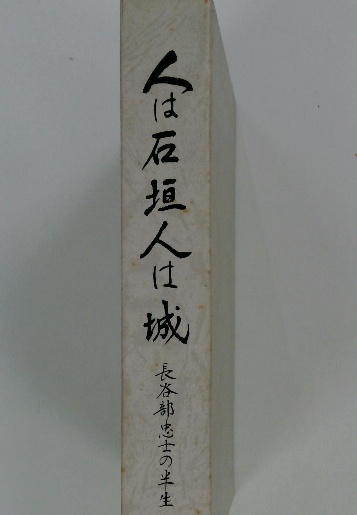 人は石垣人は城
長谷部忠士の半生